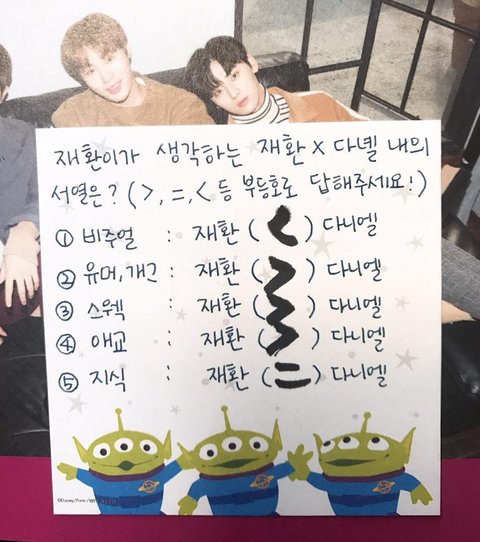 재환이가 생각하는 재환 x 다녤 내의
서열은? (>, =, < 등 부등호로 답해주세요!)
① 비주얼 : 재환 (<) 다니엘
② 유머, 개그 : 재환 (>) 다니엘
③ 스웩 : 재환 (>) 다니엘
④ 애교 : 재환 (>) 다니엘
⑤ 지식 : 재환 (=) 다니엘
©Disney/Pixar